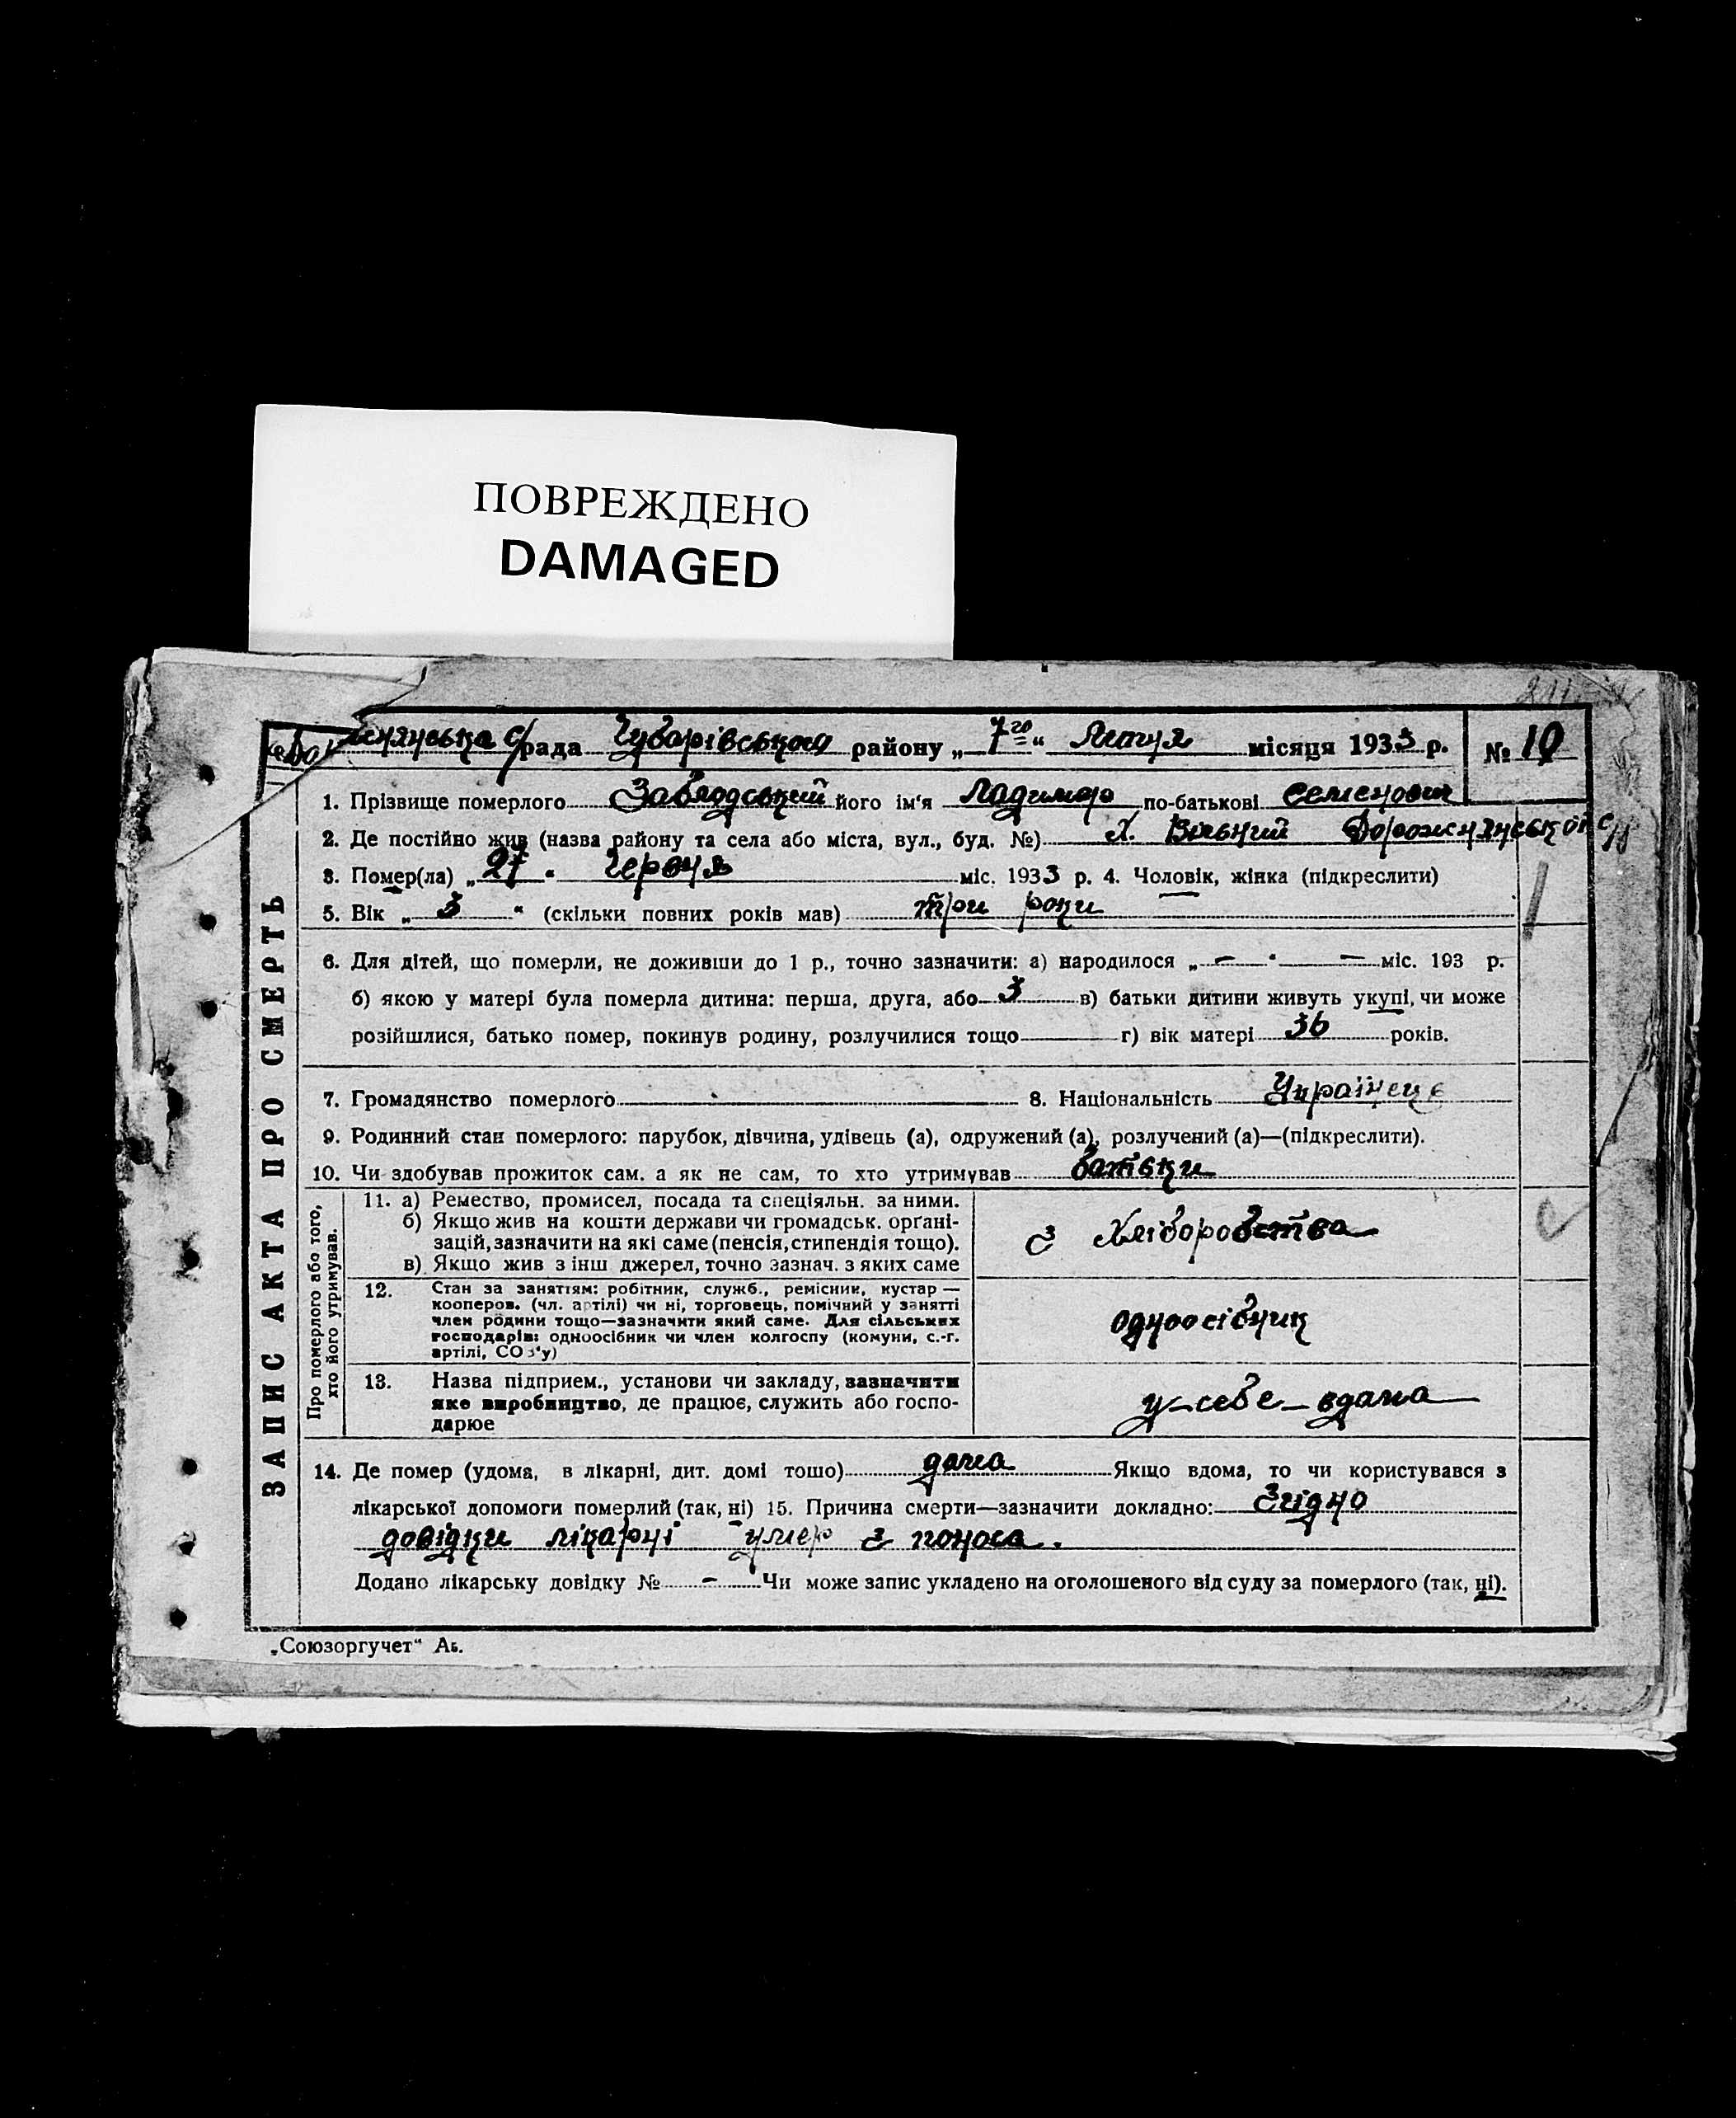 ПОВРЕЖДЕНО
DAMAGED
ЗАПИС АКТА ПРО СМЕРТЬ
снянська с/рада Чубарівського району „7го“ Липня місяця 1933 р. № 10
1. Прізвище померлого Завлодський його ім'я Ладимер по-батькові Семенович
2. Де постійно жив (назва району та села або міста, вул., буд. №) Х. Вільний Дорожнянської с/р
3. Помер(ла) „27“ Червня міс. 1933 р. 4. Чоловік, жінка (підкреслити)
5. Вік „3“ (скільки повних років мав) три роки
6. Для дітей, що померли, не доживши до 1 р., точно зазначити: а) народилося „—“ — міс. 193 р.
б) якою у матері була померла дитина: перша, друга, або 3 в) батьки дитини живуть укупі, чи може
розійшлися, батько помер, покинув родину, розлучилися тощо г) вік матері 36 років.
7. Громадянство померлого 8. Національність Українець
9. Родинний стан померлого: парубок, дівчина, удівець (а), одружений (а), розлучений (а)—(підкреслити).
10. Чи здобував прожиток сам. а як не сам, то хто утримував батьки
Про померлого або того, хто його утримував.
11. а) Ремество, промисел, посада та спеціяльн. за ними.
б) Якщо жив на кошти держави чи громадськ. орґані-
зацій, зазначити на які саме (пенсія, стипендія тощо).
в) Якщо жив з інш джерел, точно зазнач. з яких саме
З Хліборобства
12. Стан за занятіям: робітник, служб., ремісник, кустар —
кооперов. (чл. артілі) чи ні, торговець, помічний у занятті
член родини тощо—зазначити який саме. Для сільських
господарів: одноосібник чи член колгоспу (комуни, с.-г.
артілі, СОЗ'у)
одноосібник
13. Назва підприєм., установи чи закладу, зазначити
яке виробництво, де працює, служить або госпо-
дарює
у себе вдома
14. Де помер (удома, в лікарні, дит. домі тошо) дома Якщо вдома, то чи користувався з
лікарської допомоги померлий (так, ні) 15. Причина смерти—зазначити докладно: Згідно
довідки лікарні умер з поноса.
Додано лікарську довідку № - Чи може запис укладено на оголошеного від суду за померлого (так, ні).
„Союзоргучет“